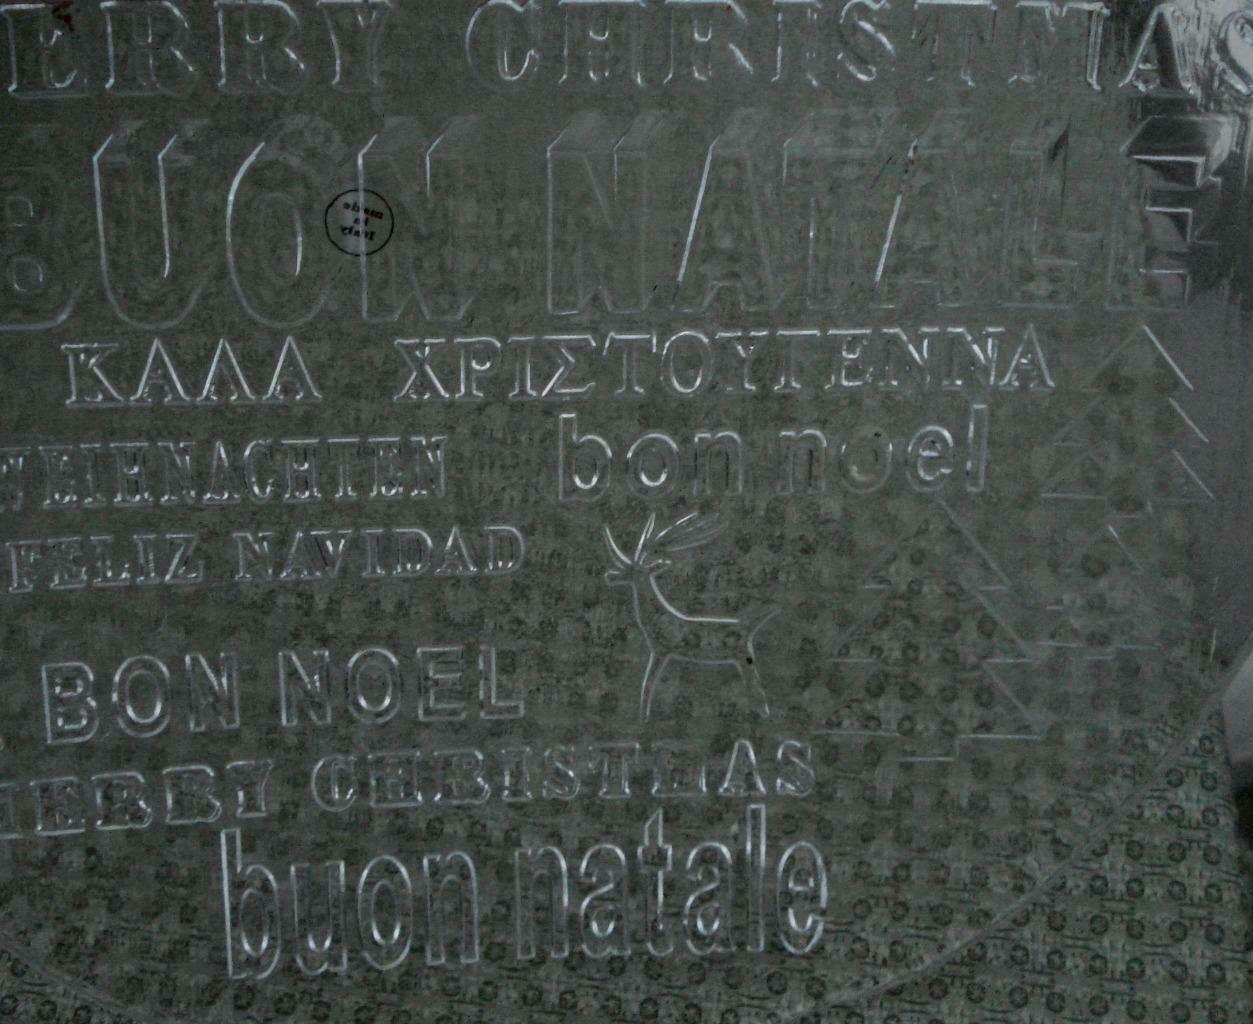 ERRY CHRISTMAS
BUON NATALE
made in Italy
ΚΑΛΑ ΧΡΙΣΤΟΥΓΕΝΝΑ
WEIHNACHTEN bon noel
FELIZ NAVIDAD
BON NOEL
MERRY CHRISTMAS
buon natale